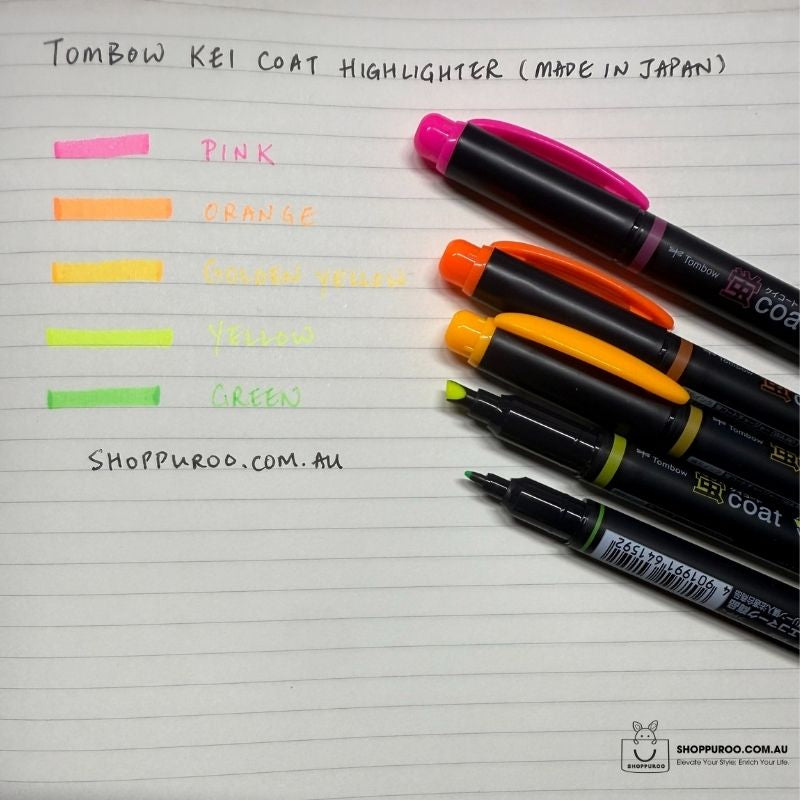 TOMBOW KEI COAT HIGHLIGHTER (MADE IN JAPAN)
PINK
ORANGE
GOLDEN YELLOW
YELLOW
GREEN
SHOPPUROO.COM.AU
Tombow
蛍
ケイコート
coa
Tombow
蛍
ケイコート
coat
4 901991 641592
エコマーク商品
SHOPPUROO
SHOPPUROO.COM.AU
Elevate Your Style: Enrich Your Life.